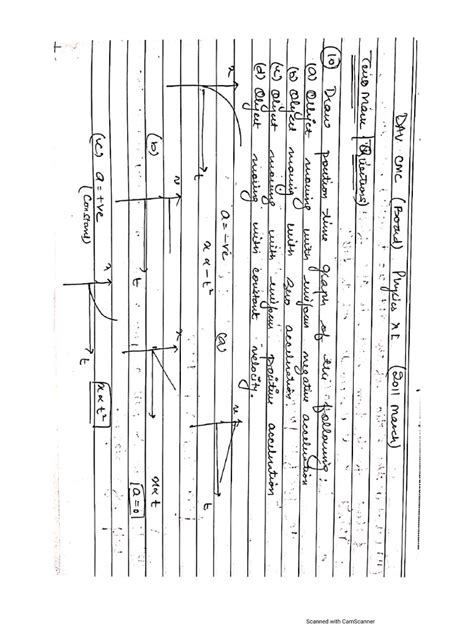 DAV CMC (Board) Physics XI (2011 March)
(Two Mark Questions)
(10) Draw position-time graph of the following:
(a) Object moving with uniform negative acceleration
(b) Object moving with zero acceleration
(c) Object moving with uniform positive acceleration
(d) Object moving with constant velocity.
a = -ve
x ∝ -t²
(a)
x
t
x
t
(b)
x
t
x
t
x ∝ t
a = 0
(c) a = +ve
(Constant)
x
t
x ∝ t²
Scanned with CamScanner